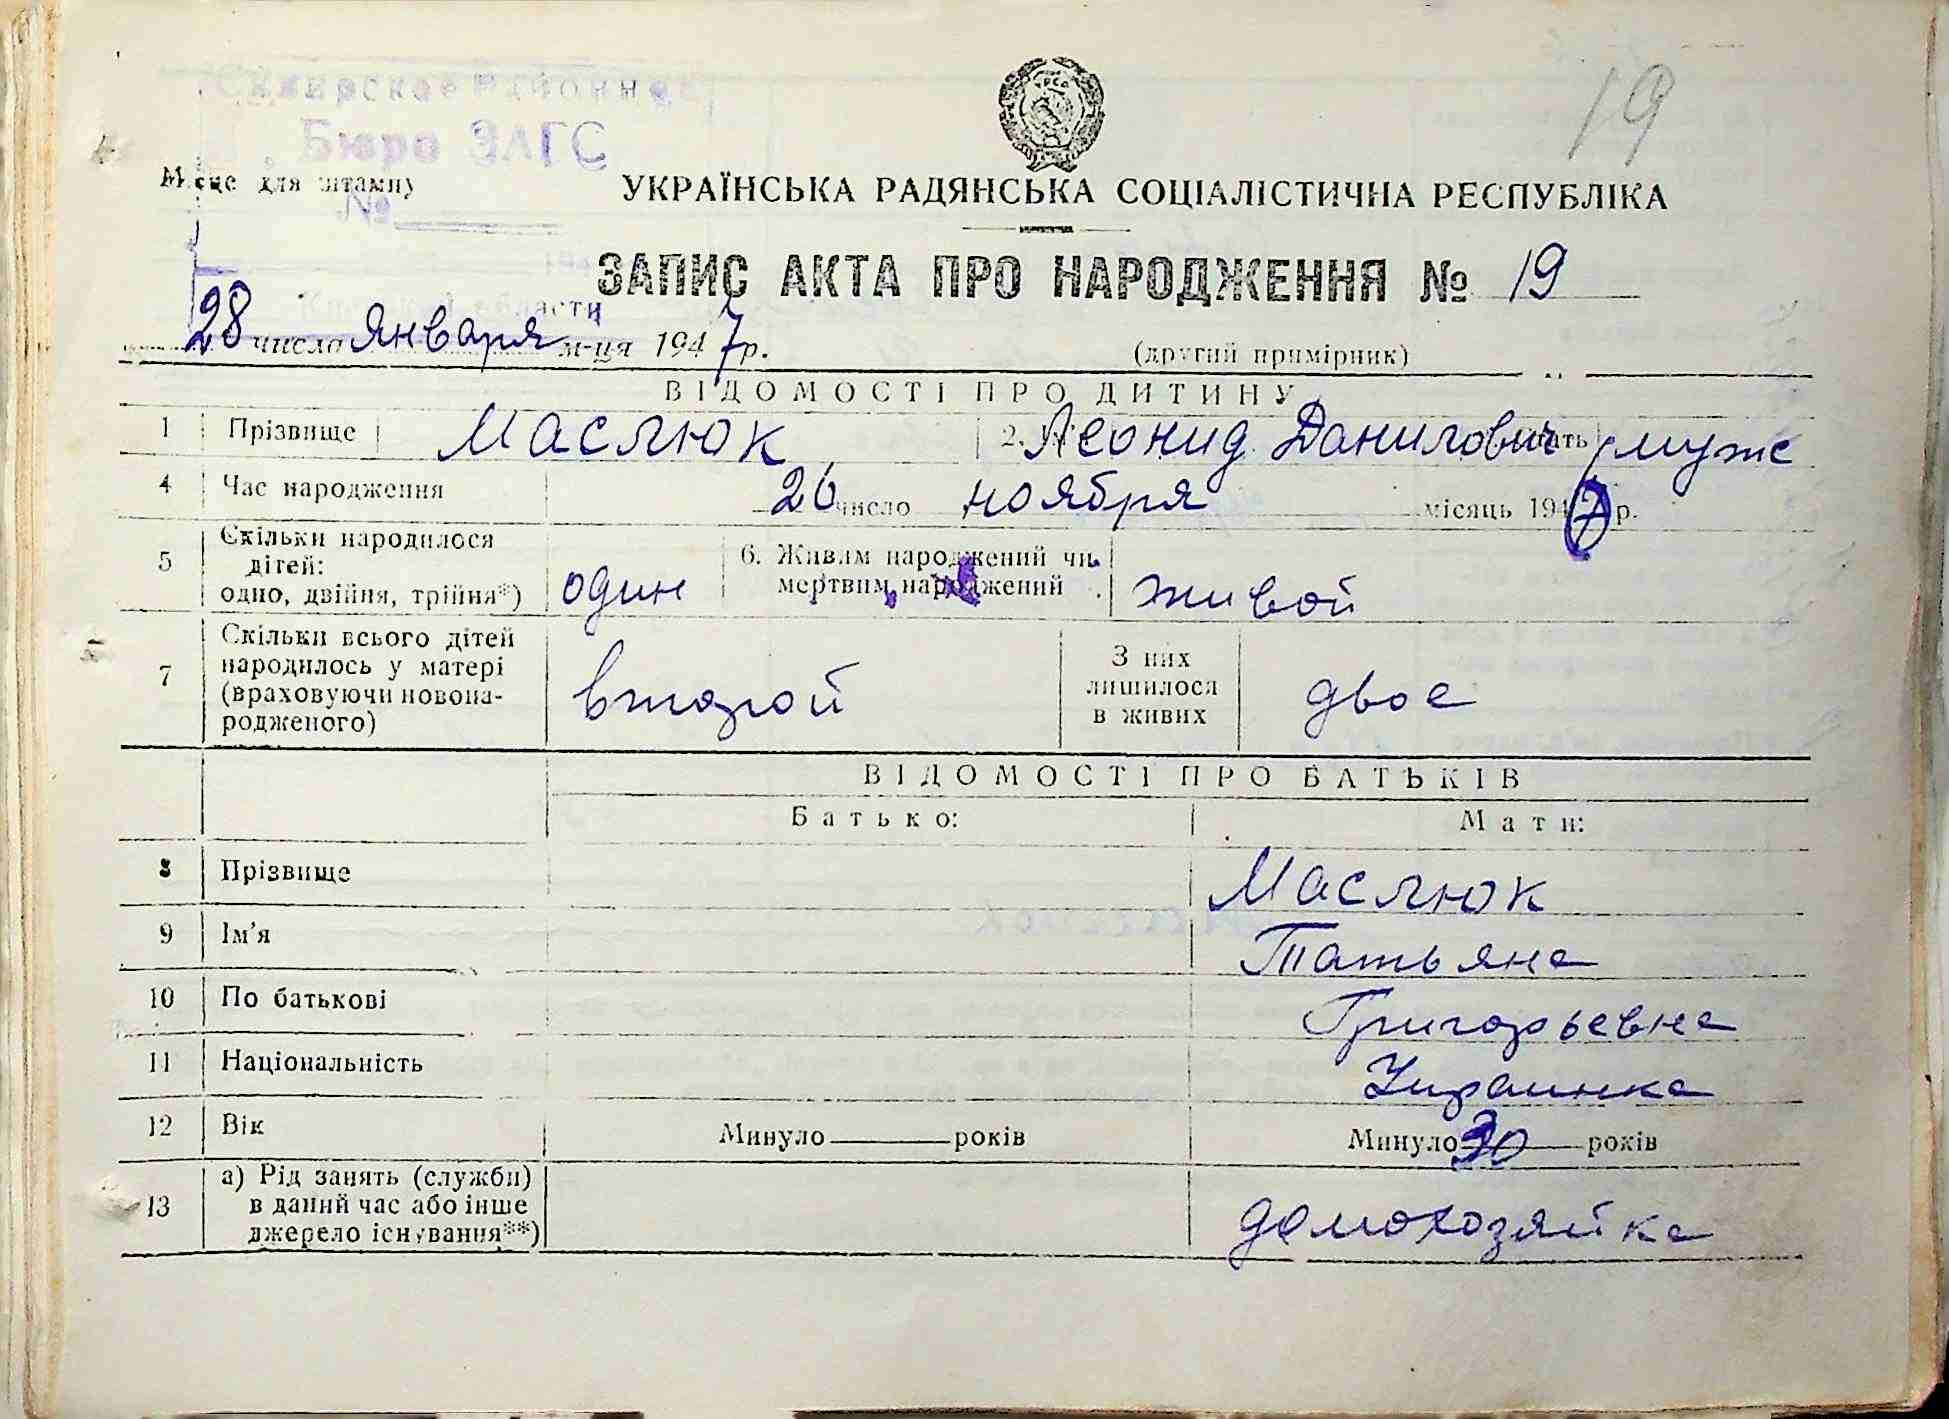 19
Сквирское Районное
Бюро ЗАГС
Місце для штампу
№
УКРАЇНСЬКА РАДЯНСЬКА СОЦІАЛІСТИЧНА РЕСПУБЛІКА
ЗАПИС АКТА ПРО НАРОДЖЕННЯ № 19
области
28 числа Января м-ця 1947 р.
(другий примірник)
ВІДОМОСТІ ПРО ДИТИНУ
1 Прізвище Маслюк 2. Леонид Данилович муж
4 Час народження 26 число ноября місяць 194 р.
5 Скільки народилося дітей: одно, двійня, трійня*) один 6. Живим народжений чи мертвим народжений живой
7 Скільки всього дітей народилось у матері (враховуючи новонародженого) второй З них лишилося в живих двое
ВІДОМОСТІ ПРО БАТЬКІВ
Батько: Мати:
8 Прізвище Маслюк
9 Ім'я Татьяна
10 По батькові Григорьевна
11 Національність Украинка
12 Вік Минуло років Минуло 30 років
13 а) Рід занять (служби) в даний час або інше джерело існування**) домохозяйка